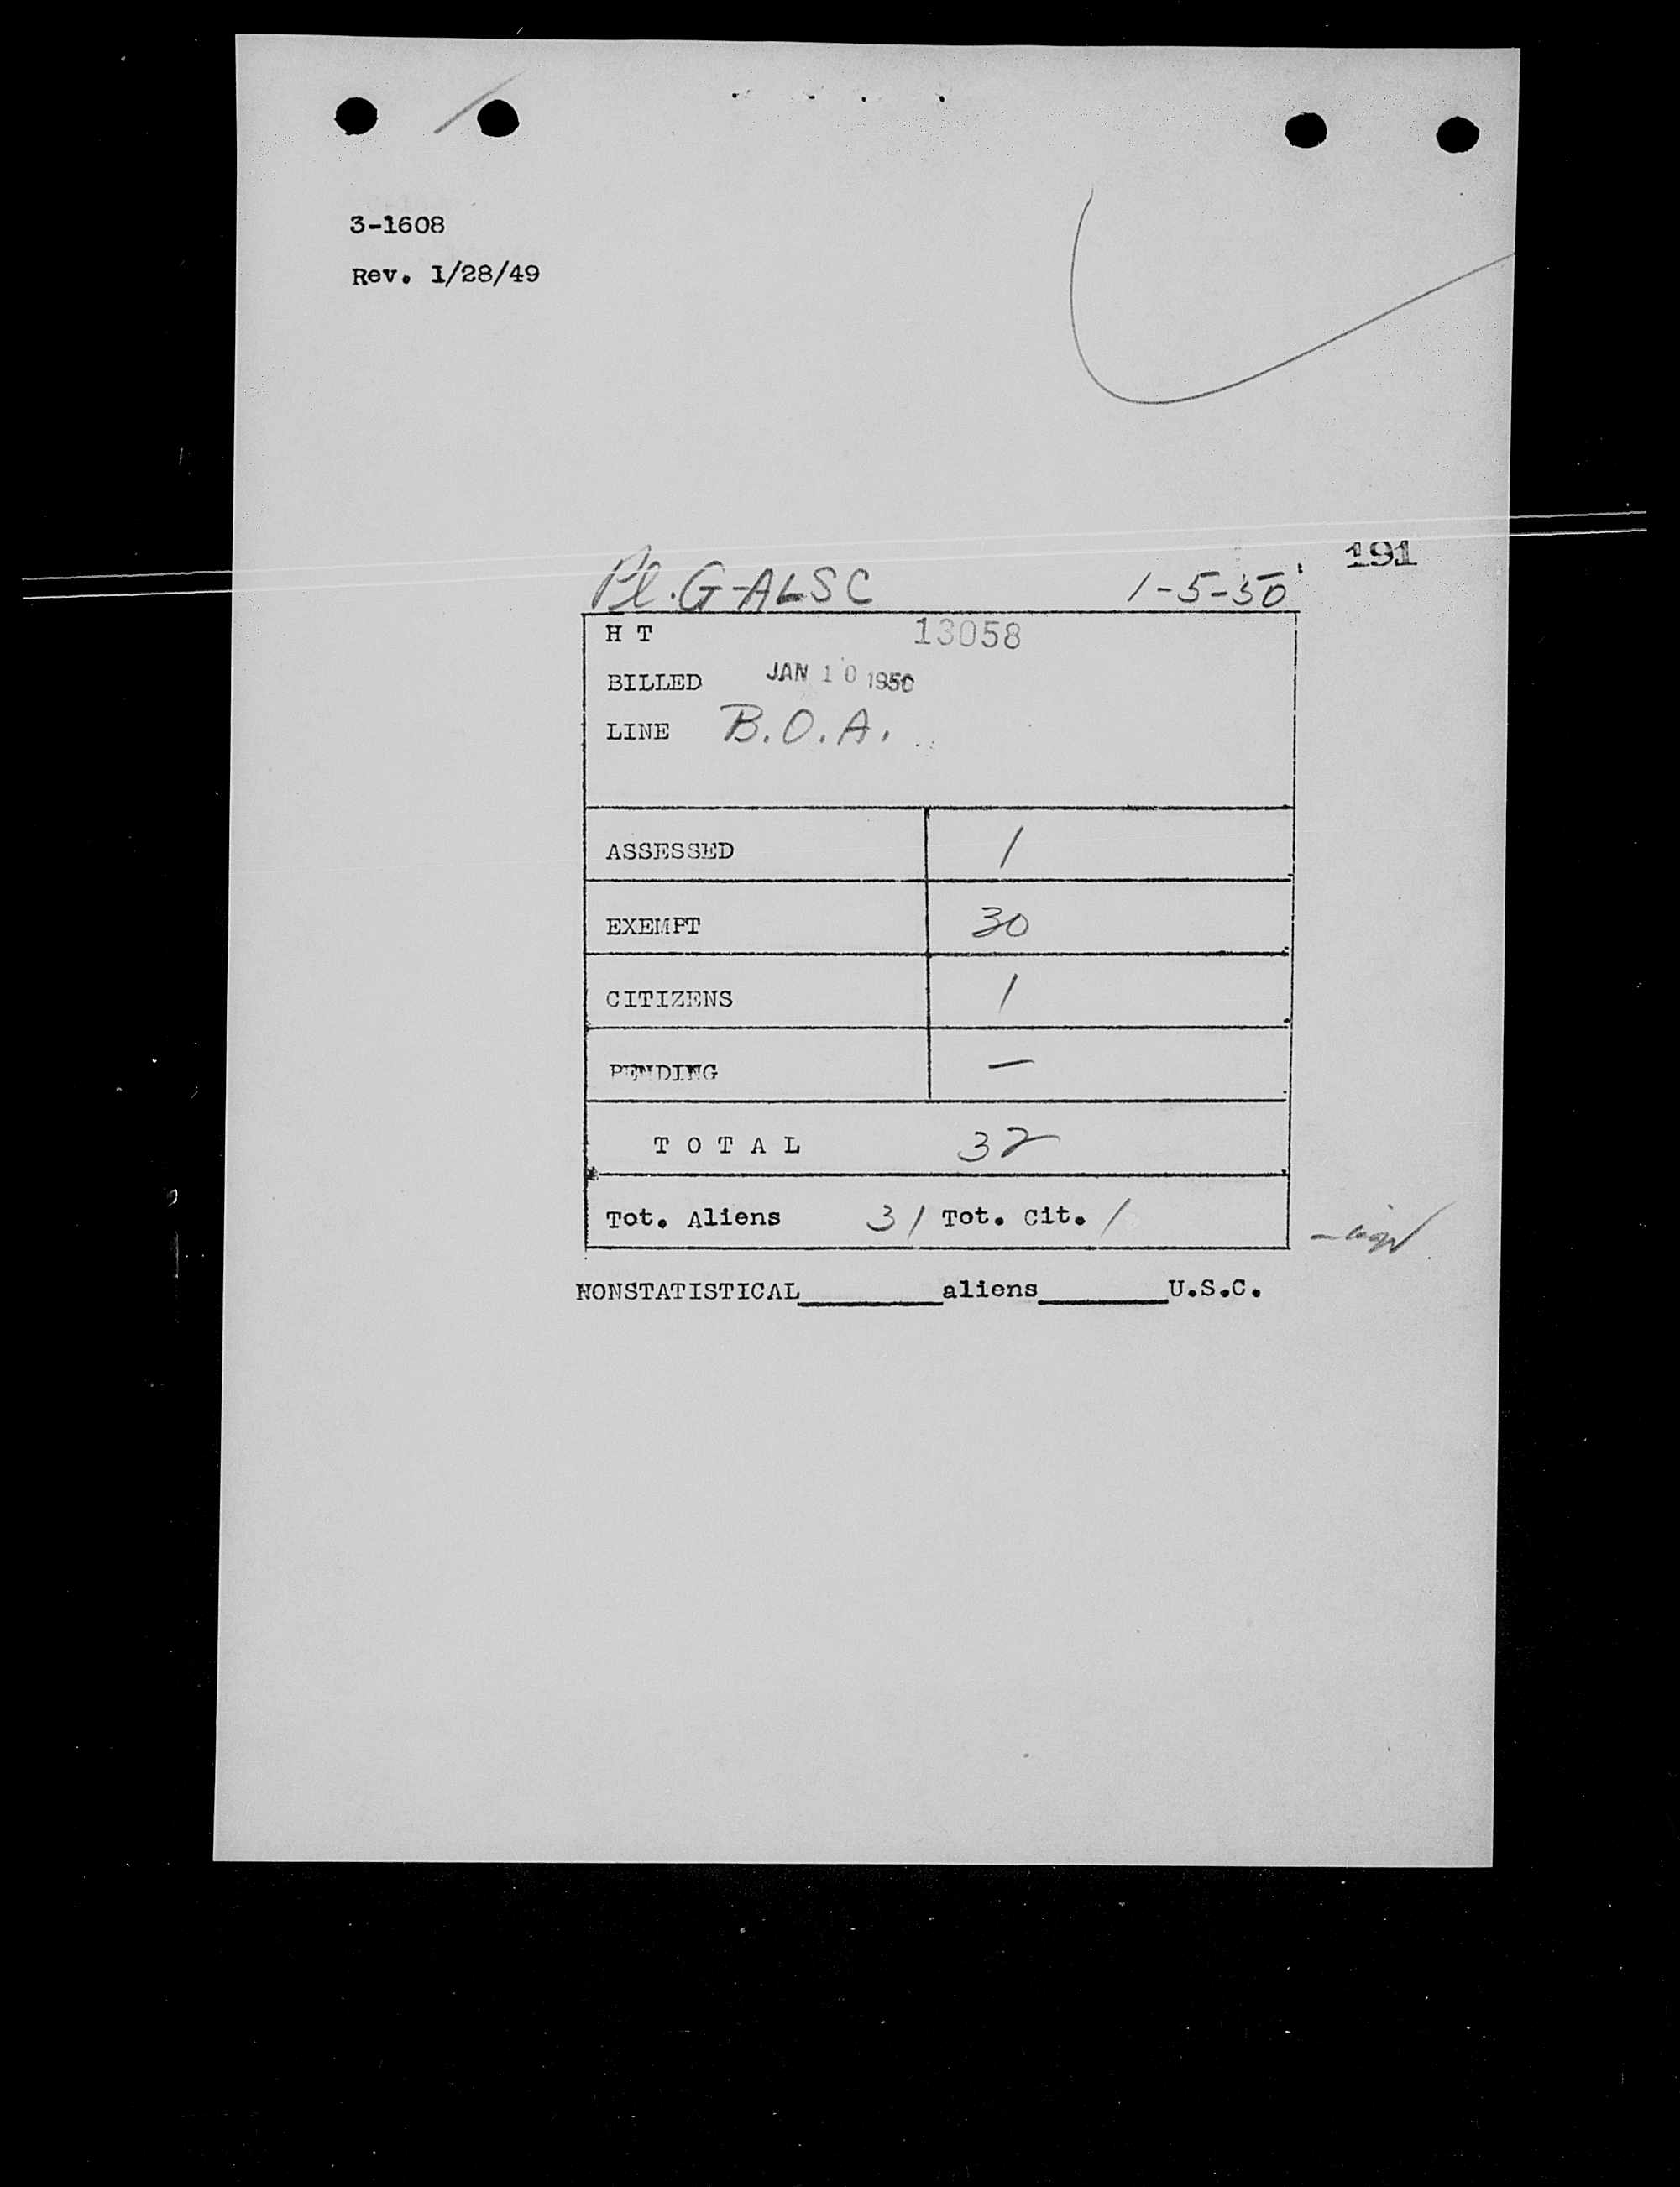 3-1608
Rev. 1/28/49
191
Pl. G-ALSC 1-5-50
H T 13058
BILLED JAN 10 1950
LINE B.O.A.
ASSESSED 1
EXEMPT 30
CITIZENS 1
PENDING —
T O T A L 32
Tot. Aliens 31 Tot. Cit. 1
NONSTATISTICAL________aliens________U.S.C.